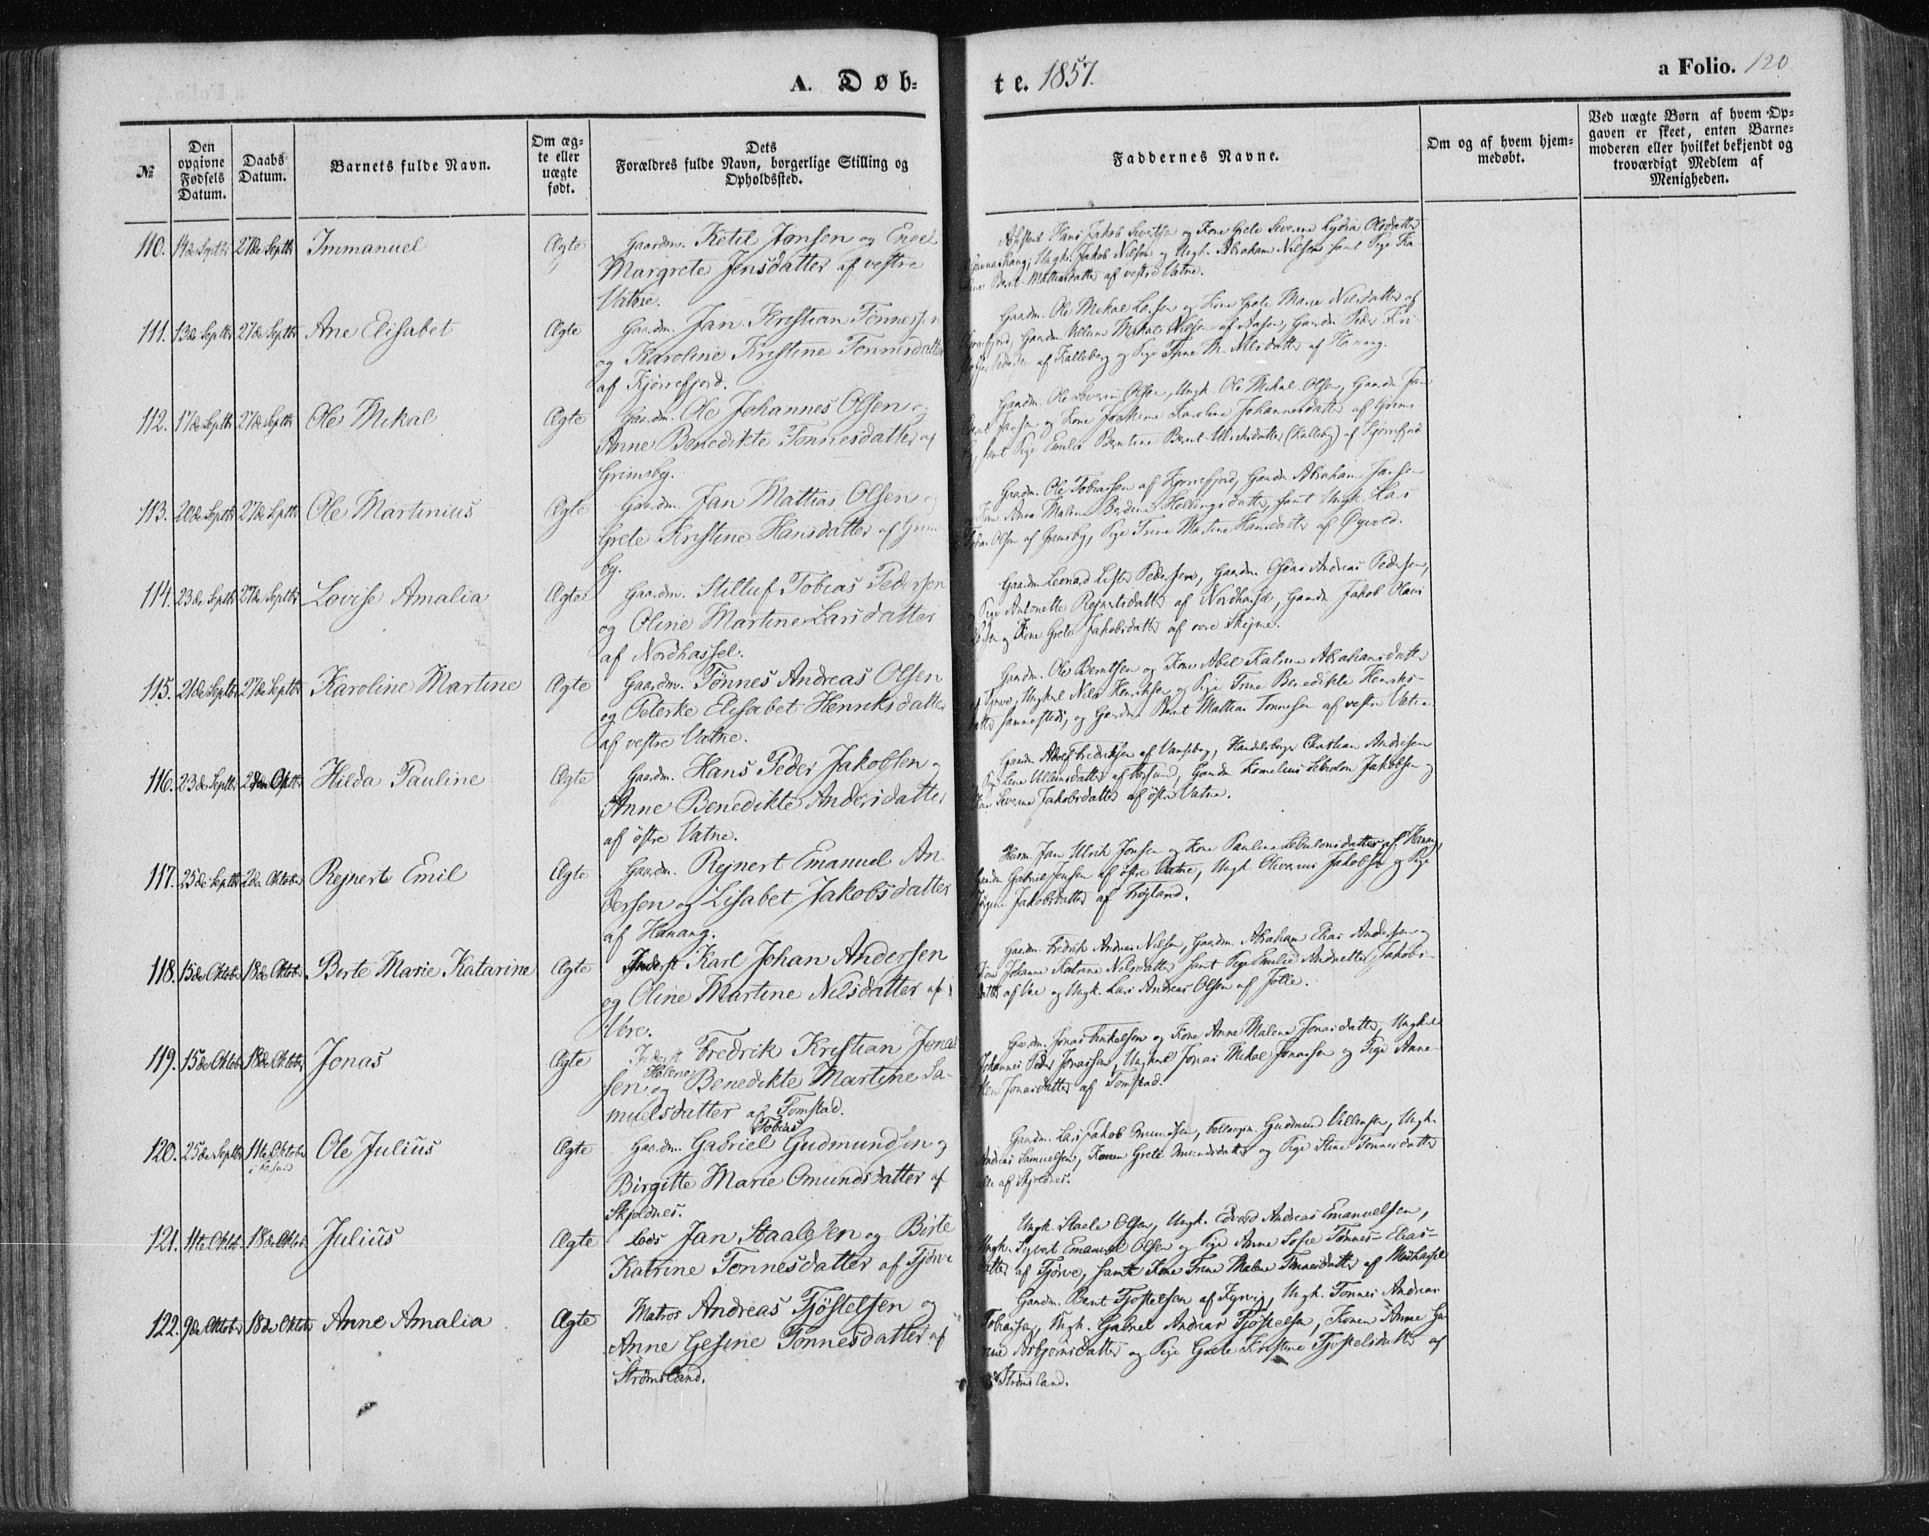 A. Døb-
te. 1857.
a Folio. 120
№
Den opgivne Fødsels Datum.
Daabs Datum.
Barnets fulde Navn.
Om ægte eller uægte født.
Dets Forældres fulde Navn, borgerlige Stilling og Opholdssted.
Faddernes Navne.
Om og af hvem hjemmedøbt.
Ved uægte Børn af hvem Opgaven er skeet, enten Barnemoderen eller hvilket bekjendt og troværdigt Medlem af Menigheden.
110. 14de Septbr 27de Septbr Immanuel Ægte Gaardm. Ketil Jonsen og Engel
Margrete Jensdatter af vestre
Vatne.
Hans Jakob Sivertsen og Kone Grete Severine Lydia Olsdatter
Ungk. Jakob Nilsen og Ungk. Abraham Nilsen samt Pige
Berit Mathiasdatter af vestre Vatne.
111. 13de Septbr 27de Septbr Ane Elisabet Ægte Gaardm. Jan Kristian Tønnessen
og Karoline Kristine Tønnesdatter
af Kjørrefjord.
Gaardm. Ole Mikal Larsen og Kone Grete Marie Nilsdatter af
Gaardm. Villum Mikal Nilsen af Aasen, Gaardm. Peder
af Kalleberg og Pige Trine M. Nilsdatter af Hanang.
112. 17de Septbr 27de Septbr Ole Mikal Ægte Gaardm. Ole Johannes Olsen og
Anne Benedikte Tønnesdatter af
Grimsby.
Gaardm. Ole Severin Olsen, Ungk. Ole Mikal Olsen, Gaardm. Jan
og Kone Karoline Johannesdatter af Grims-
by, samt Pige Emilie Berntine Bernt-Ulriksdatter (Kalleberg) af Kjørrefjord
113. 20de Septbr 27de Septbr Ole Martinius Ægte Gaardm. Jan Mattias Olsen og
Grete Kristine Hansdatter af Grims-
by.
Gaardm. Ole Tobiassen af Kjørrefjord, Gaardm. Abraham Jansen
Anne Malene Berdine Hellingsdatter, samt Ungk. Lars
Tobias Olsen af Grimsby, Pige Trine Martine Hansdatter af Øyvold.
114. 23de Septbr 27de Septbr Lovise Amalia Ægte Gaardm. Stilluf Tobias Pedersen
og Oline Martine Larsdatter
af Nordhassel.
Gaardm. Leonard Lister Pedersen, Gaardm. Andreas Pedersen,
Pige Antonette Rejnertsdatter af Nordhassel, Gaardm. Jakob
og Kone Grete Jakobsdatter af
115. 21de Septbr 27de Septbr Karoline Martine Ægte Gaardm. Tønnes Andreas Olsen
og Peterke Elisabet Henriksdatter
af vestre Vatne.
Gaardm. Ole Berntsen og Kone Abel Katrine Abrahamsdatter
af Tjørve, Ungkarl Nils Henriksen og Pige Trine Benedikte Henriks-
datter sammesteds, og Gaardm. Bernt Mattias Tønnessen af vestre Vatne
116. 23de Septbr 2den Oktbr Hilda Pauline Ægte Gaardm. Hans Peder Jakobsen og
Anne Benedikte Andersdatter
af østre Vatne.
Gaardm. Adolf Fredriksen af Vanseberg, Handelsborger Christian Andersen
Lene Villumsdatter af Farsund, Gaardm. Kornelius Sebulon Jakobsen og
Kone Severine Jakobsdatter af østre Vatne.
117. 25de Septbr 2den Oktober Rejnert Emil Ægte Gaardm. Rejnert Emanuel An-
dersen og Lisabet Jakobsdatter
af Hanang.
Husm. Jan Ulrik Jonsen og Kone Pauline Sebulonsdatter af Hanang,
Gaardm. Gabriel Jensen af østre Vatne, Ungk. Olivarius Jakobsen og Pige
Jørgine Jakobsdatter af Frøgland.
118. 15de Oktober 18de Oktober Berte Marie Katarine Ægte Inderst Karl Johan Andersen
og Oline Martine Nilsdatter af
Vere.
Gaardm. Fredrik Andreas Nilsen, Gaardm. Abraham Elias Andersen og
Kone Johanne Katrine Nilsdatter samt Pige Emilie Andrette Jakobs-
datter af Vere og Ungk. Lars Andreas Olsen af Jølle.
119. 15de Oktober 18de Oktober Jonas Ægte Inderst Fredrik Kristian Jonas-
sen og Helene Benedikte Martine Sa-
muelsdatter af Tomstad.
Gaardm. Jonas Torkelsen og Kone Anne Malene Jonasdatter, Ungkarl
Johannes Peder Jonassen, Ungkarl Jonas Mikal Jonassen og Pige Anne
Jonasdatter af Tomstad.
120. 25de Septbr 11te Oktober i Farsund Ole Julius Ægte Gaardm. Gabriel Tobias Gudmundsen og
Birgitte Marie Omundsdatter af
Skjoldnes.
Gaardm. Lars Jakob Omundsen, Gudmund Villumsen, Ungk.
Andreas Samuelsen, Konen Grete Omundsdatter og Pige Stine Tønnesdatter
alle af Skjoldnes.
121. 11te Oktbr 18de Oktbr Julius Ægte Lods Jan Staalesen og Birte
Katrine Tønnesdatter af Tjørve
Ungk. Staale Olsen, Ungk. Edvard Andreas Emanuelsen,
Ungk. Sigvart Emanuel Olsen og Pige Anne Sofie Tønnes-Elias-
datter af Tjørve, samt Kone Trine Malene Tønnesdatter af Medhassel
122. 9de Oktober 18de Oktober Anne Amalia Ægte Matros Andreas Tjøstelsen og
Anne Gesine Tønnesdatter af
Strømsland.
Gaardm. Bernt Tjøstelsen af Egvig, Ungk. Tønnes Andreas
Tobiassen, Ungk. Gabriel Andreas Tjøstelsen, Konen Anne Ga-
Asbjørnsdatter og Pige Grete Kristine Tjøstelsdatter af
Strømsland.